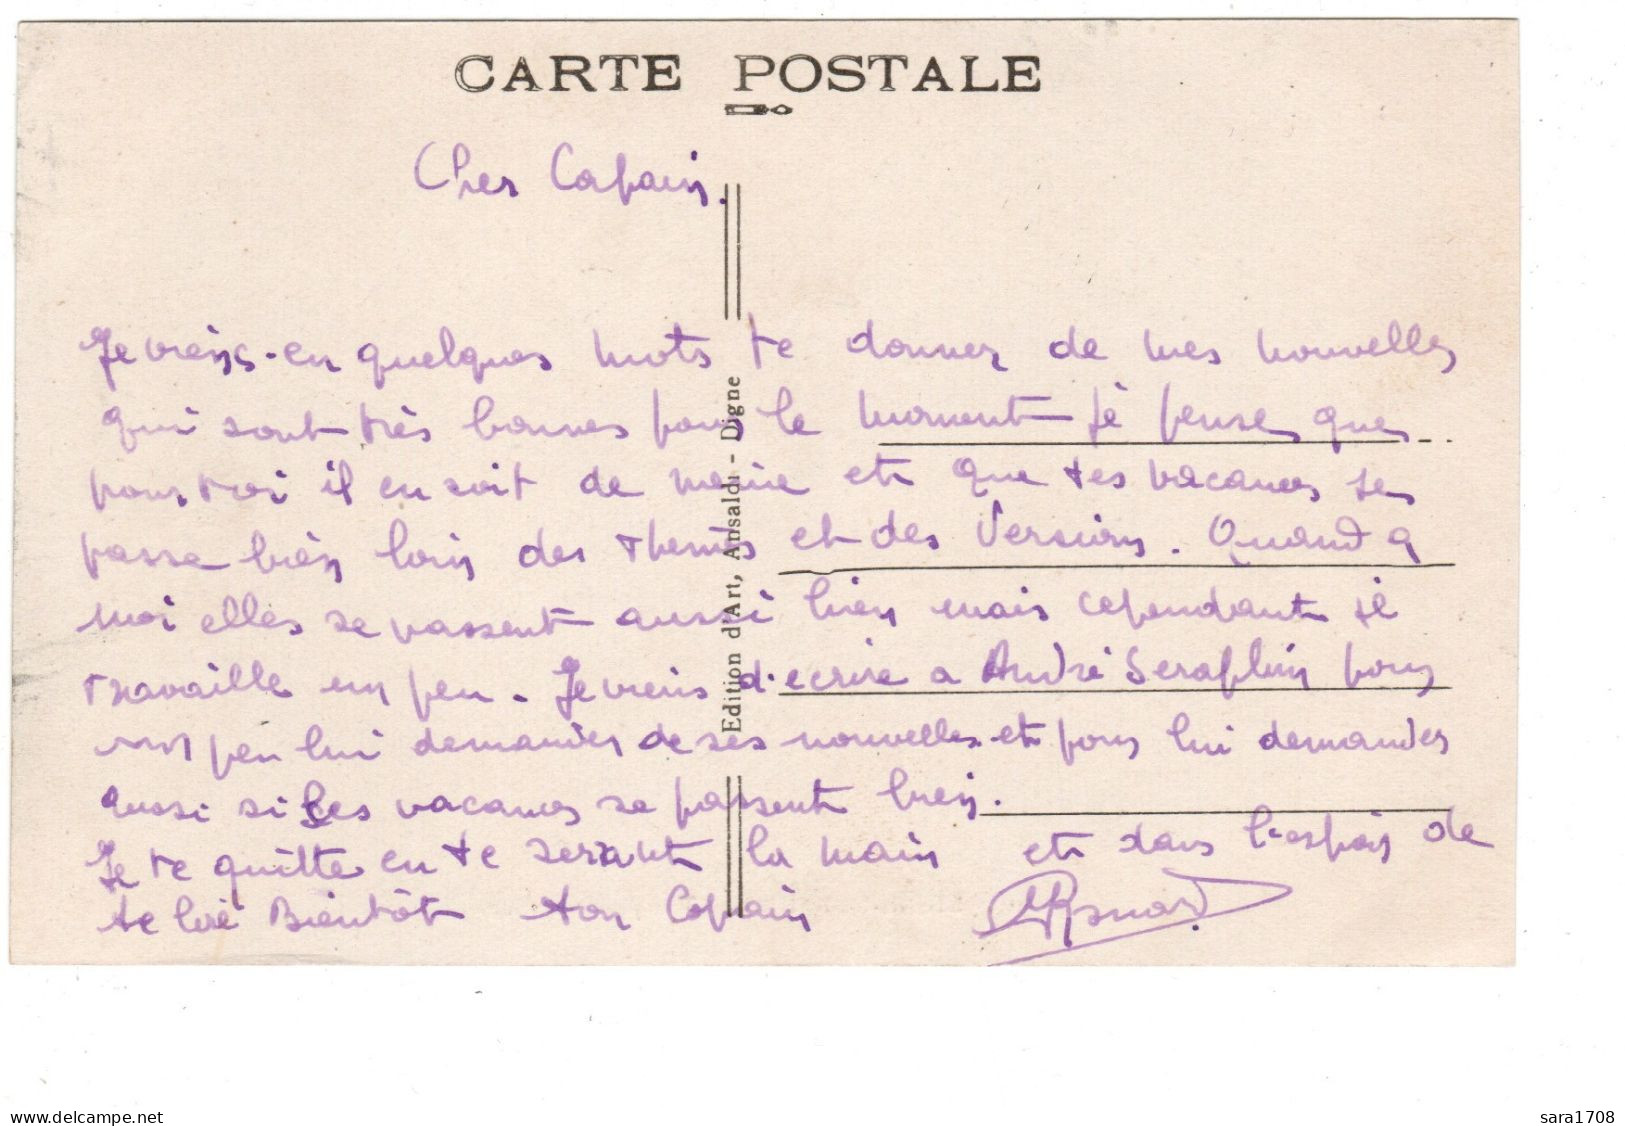 CARTE POSTALE
Cher Copain.
Je viens en quelques mots te donner de mes nouvelles
qui sont très bonnes pour le moment je pense que
pour toi il en soit de meme et que tes vacances se
passe bien loin des Themes et des Versions. Quand a
moi elles se passent aussi bien mais cependant je
travaille un peu. Je viens d'ecrire a André Seraphin pour
un peu lui demander de ses nouvelles et pour lui demander
aussi si Ses vacances se passent bien.
Je te quitte en te serrant la main et dans l'espoir de
te lire Bientôt ton Copain
Edition d'Art, Ansaldi - Digne
www.delcampe.net
sara1708